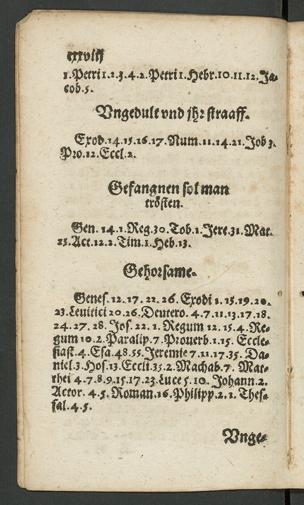 xxviij
1.Petri 1.2.3.4.2.Petri 1.Hebr.10.11.12.Ja-
cob.5.
Vngedult vnd jhr straaff.
Exod.14.15.16.17.Num.11.14.21.Job 3.
Pro.12.Eccl.2.
Gefangnen sol man
trösten.
Gen. 14.1.Reg.30.Tob.1.Jere.31.Mat.
25.Act.12.2.Tim.1.Heb.13.
Gehorsame.
Genes.12.17.21.26.Exodi 1.15.19.20.
23.Leuitici 20.26.Deutero.4.7.11.13.17.18.
24.27.28.Jos.22.1.Regum 12.15.4.Re-
gum 10.2.Paralip.7.Prouerb.1.15.Eccle-
siast.4.Esa.48.55.Jeremie 7.11.17.35.Da-
niel.3.Hos.13.Eccli.35.2.Machab.7. Mat-
thei 4.7.8.9.15.17.23.Luce 5.10. Johann.2.
Actor. 4.5.Roman.16.Philipp.2.1. Thes-
sal.4.5.
Vnge-